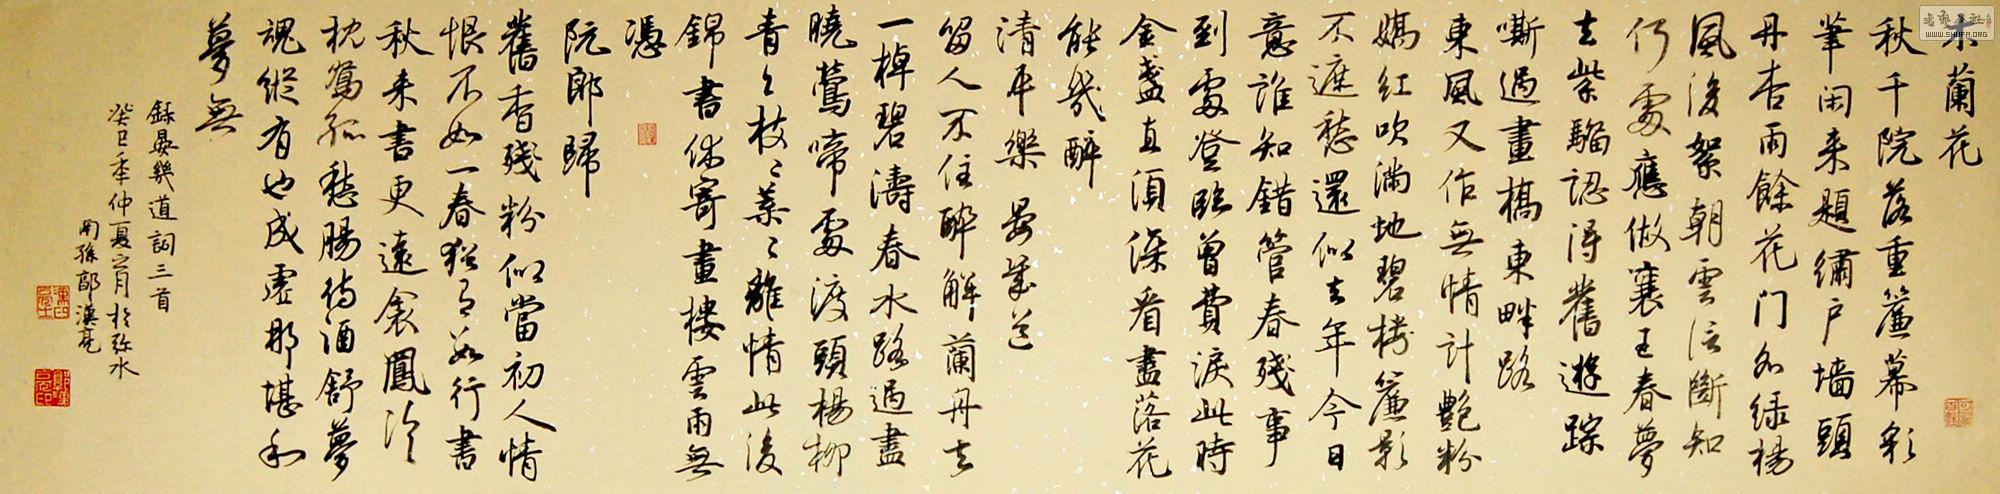 木蘭花
秋千院落重簾幕彩
筆闲来題繡户墙頭
丹杏雨餘花门外绿楊
風後絮朝雲信斷知
何處應做襄王春夢
去紫騮認得舊遊踪
嘶過畫橋東畔路
東風又作無情計艷粉
嬌紅吹滿地碧樓簾影
不遮愁還似去年今日
意誰知錯管春殘事
到處登臨曾費淚此時
金盞直須深看盡落花
能幾醉
清平樂 晏幾道
留人不住醉解蘭舟去
一棹碧濤春水路過盡
曉鶯啼處渡頭楊柳
青々枝々葉々離情此後
錦書休寄畫樓雲雨無
憑
阮郎歸
舊香殘粉似當初人情
恨不如一春猶有數行書
秋来書更遠衾鳳冷
枕鴛孤愁腸待酒舒夢
魂縱有也成虚那堪和
夢無
録晏幾道詞三首
癸巳年仲夏之月於弥水
南孫郭漢亮
書法公社
WWW.SHUFA.ORG